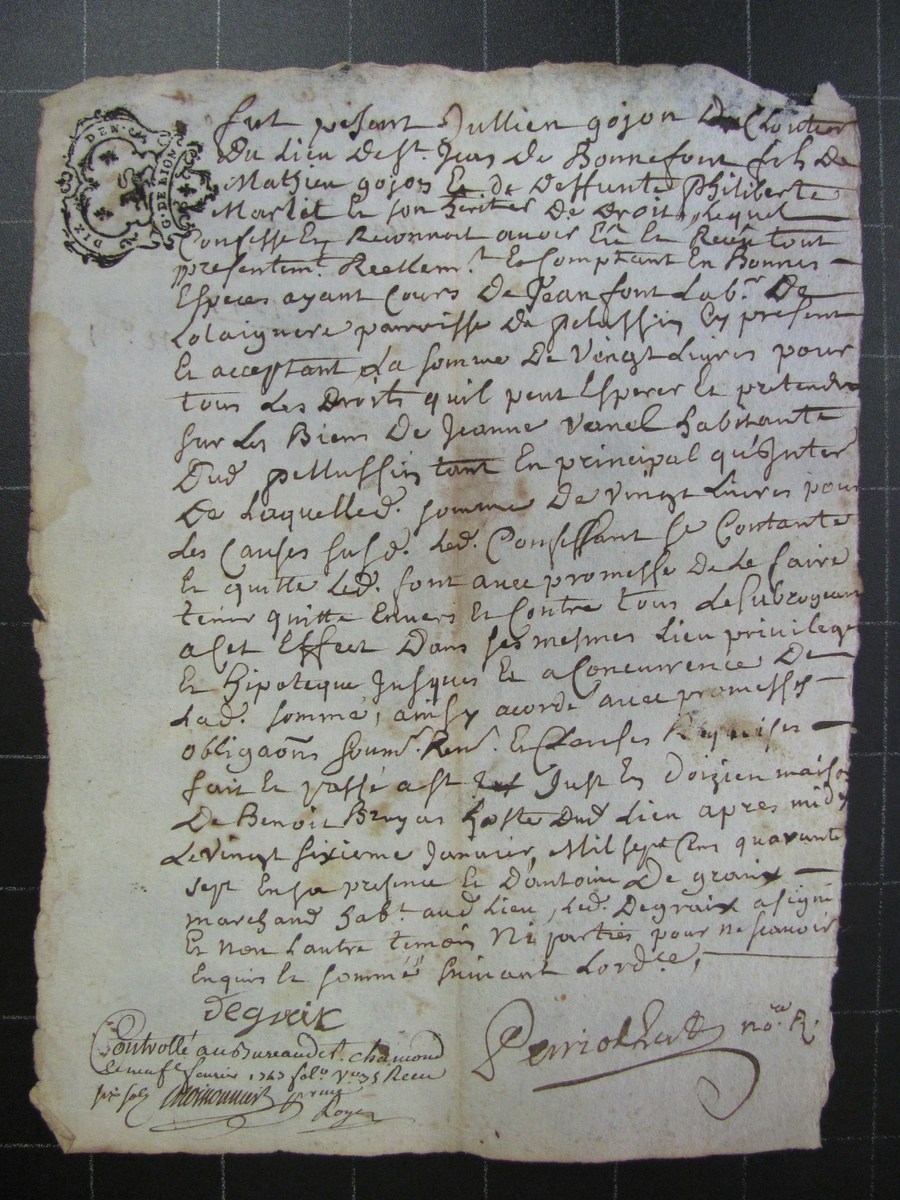 DIX DEN.
G. DE LION
fut présent Jullien gojon Cloutier
Du Lieu de St. Jean De Bonnefont fils De
Mathieu gojon Et de Deffunte Philiberte
Marlet Et son heritier De Droit, Lequel
Confesse Et Reconnoit avoir Eü Et Receu tout
presentemt. Reellemt. Et Comptant En Bonnes
Especes ayant Cours De Jean font Labr. De
parroisse De pelussin Cy présent
Et acceptant La somme De Vingt Livres pour
tous Les Droits quil peut Esperer Et pretendre
sur Les Biens De Jeanne Vanel habitante
Dud pellussin tant En principal qu'Inter
De Laquelled. somme De Vingt Livres pour
Les Causes susd. Led. Confessant se Contante
Et quitte Led. font avec promesse De Le faire
tenir quitte Envers Et Contre tous Le subrogeant
a Cet Effect Dans ses mesmes Lieu privilege
Et hipoteque Jusques Et a Concurrence De
Lad. somme, ainsy acordé avec promesses
obligaons soumn. Renn. Et Clauses Requises
fait Et passé a st Just En Doizieu maison
De Benoit Bruyas hoste Dud Lieu apres midy
Le Vingt sixieme Janvier, Mil sept Cens quarante
sept En sa presence Et D'antoine De graix
marchand habt. aud Lieu, Led. Degraix a signé
Et non Lautre temoin Ni parties pour ne scavoir
Enquis Et sommé suivant Lordce,
Degraix
no.re R.
Controllé au Bureau de st. chamond
Le neuf fevrier 1747 folo Receu
six sols